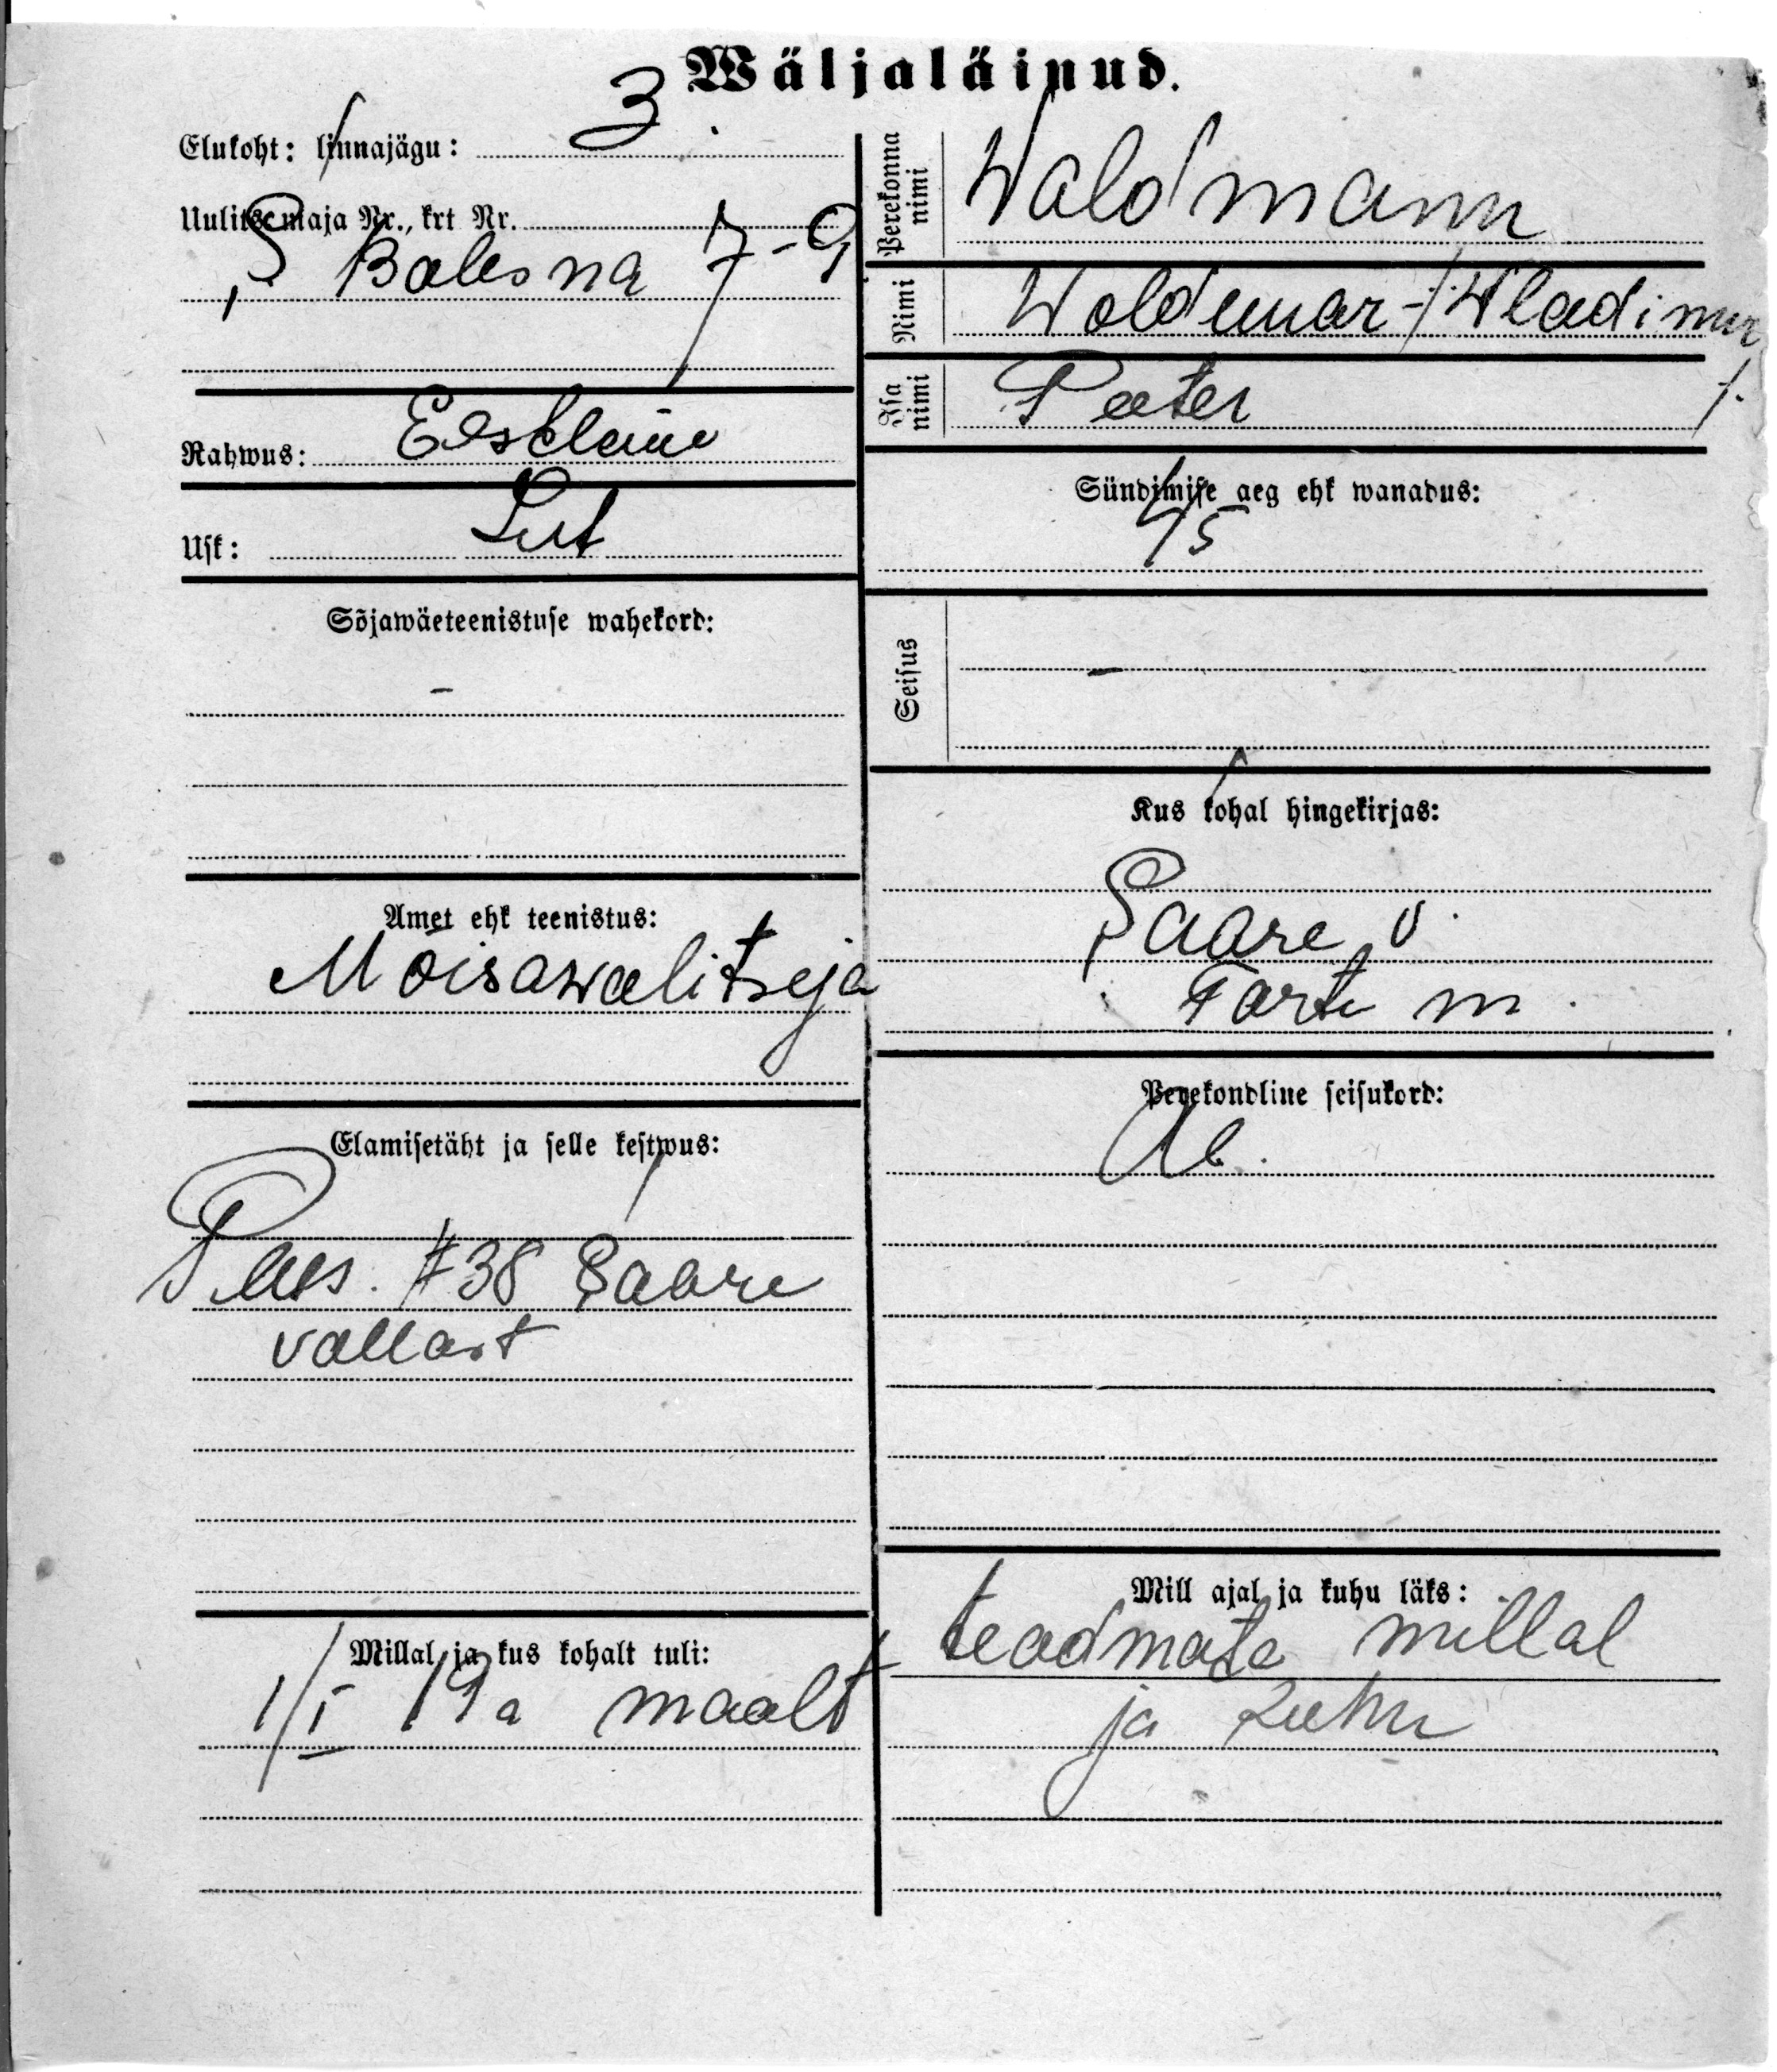 Wäljaläinud.
Elukoht: linnajägu: 3
Uulitse maja Nr., krt Nr.
S Balesna 7-9
Rahwus: Eestlane
Usk: Lut
Sõjawäeteenistuse wahekord:
-
Amet ehk teenistus:
Mõisawalitseja
Elamisetäht ja selle kestwus:
Pass. #38 Saare
vallast
Millal ja kus kohalt tuli:
1/I 19a maalt
Perekonna nimi Waldmann
Nimi Woldemar-/Wladimir
Isa nimi Peeter /.
Sündimise aeg ehk wanadus:
45
Seisus -
Kus kohal hingekirjas:
Saare v.
Tartu m.
Perekondline seisukord:
Ab.
Mill ajal ja kuhu läks:
teadmata millal
ja kuhu